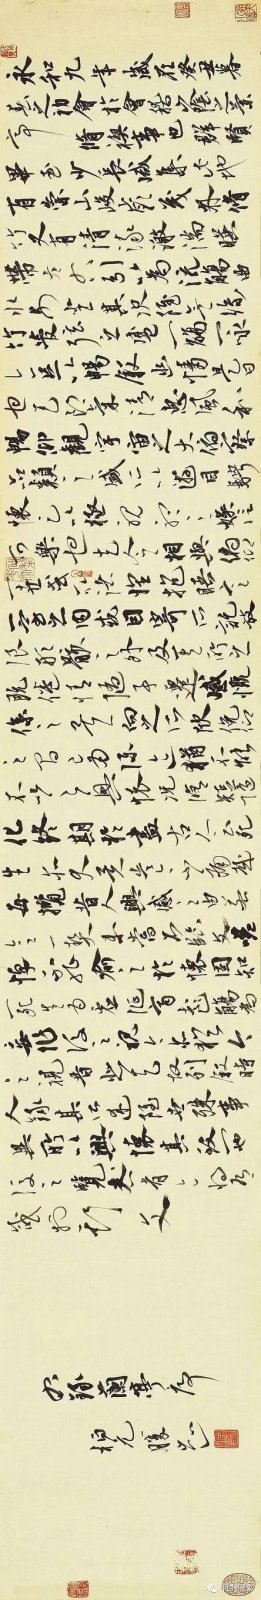 永和九年歲在癸丑暮
春之初會於會稽山陰之蘭
亭脩禊事也群賢
畢至少長咸集此地
有崇山峻嶺茂林脩
竹又有清流激湍暎
帶左右引以為流觴曲
水列坐其次雖無絲
竹管弦之盛一觴一詠
亦足以暢敘幽情是日
也天朗氣清惠風和
暢仰觀宇宙之大俯察
品類之盛所以遊目騁
懷足以極視聽之娛信
可樂也夫人之相與俯仰
一世或取諸懷抱悟言
一室之內或因寄所託放
浪形骸之外及其所之
既倦情隨事遷感慨
係之矣向之所欣俛仰
之間已為陳迹猶不能
不以之興懷況脩短隨
化終期於盡古人云死
生亦大矣豈不痛哉
每攬昔人興感之由若
合一契未嘗不臨文嗟
悼不能喻之於懷固知
一死生為虛誕齊彭殤為
妄作後之視今亦猶今
之視昔悲夫故列敘時
人錄其所述雖世殊事
異所以興懷其致一也
後之覽者亦將有
感於斯文
右錄蘭亭序